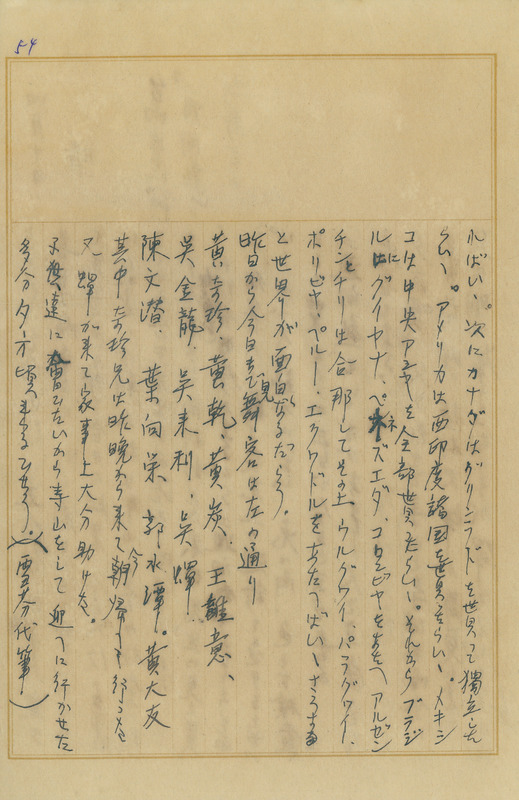 54
ればいゝ。次にカナダはグリンランドを貰って獨立したら
いゝ。アメリカは西印度諸国を貰ったらいゝ。メキシ
コは中央アメリカを全部貰えらいゝ。それから ブラジ
ルにはグイヤナ、ベネズエダ、コロンビヤをあたへアルゼン
チンとチリは合邦してその上 ウルグワイ、パラグワイ、
ボリビヤ、ペルー、エクワドルを あたへればいゝ さうする
と世界が面白くなるだらう。
昨日から今日まで見舞客は左の通り
黄奇珍、黄乾、黄炭、王
吳金龍、吳来利、吳輝
陳文潜、葉向栄 郭水潭。黄大友
其中奇珍兄は昨晩から来て今朝帰って行った
又 輝が来て家事上大分助けた。
たいから 寿山をして 迎へに行かせた
多分夕方頃来るでせう。(雪芬代筆)